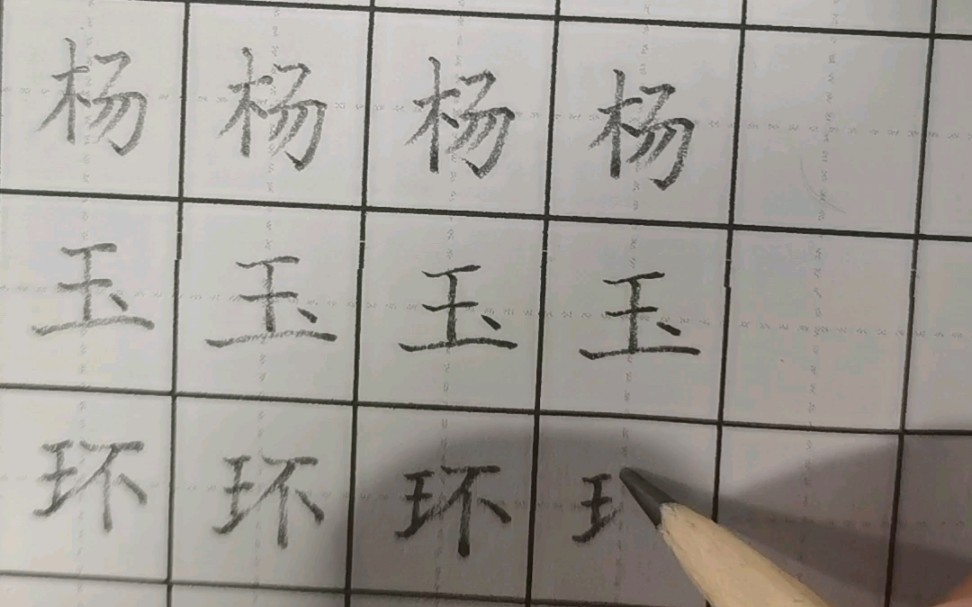 杨 杨 杨 杨
玉 玉 玉 玉
环 环 环